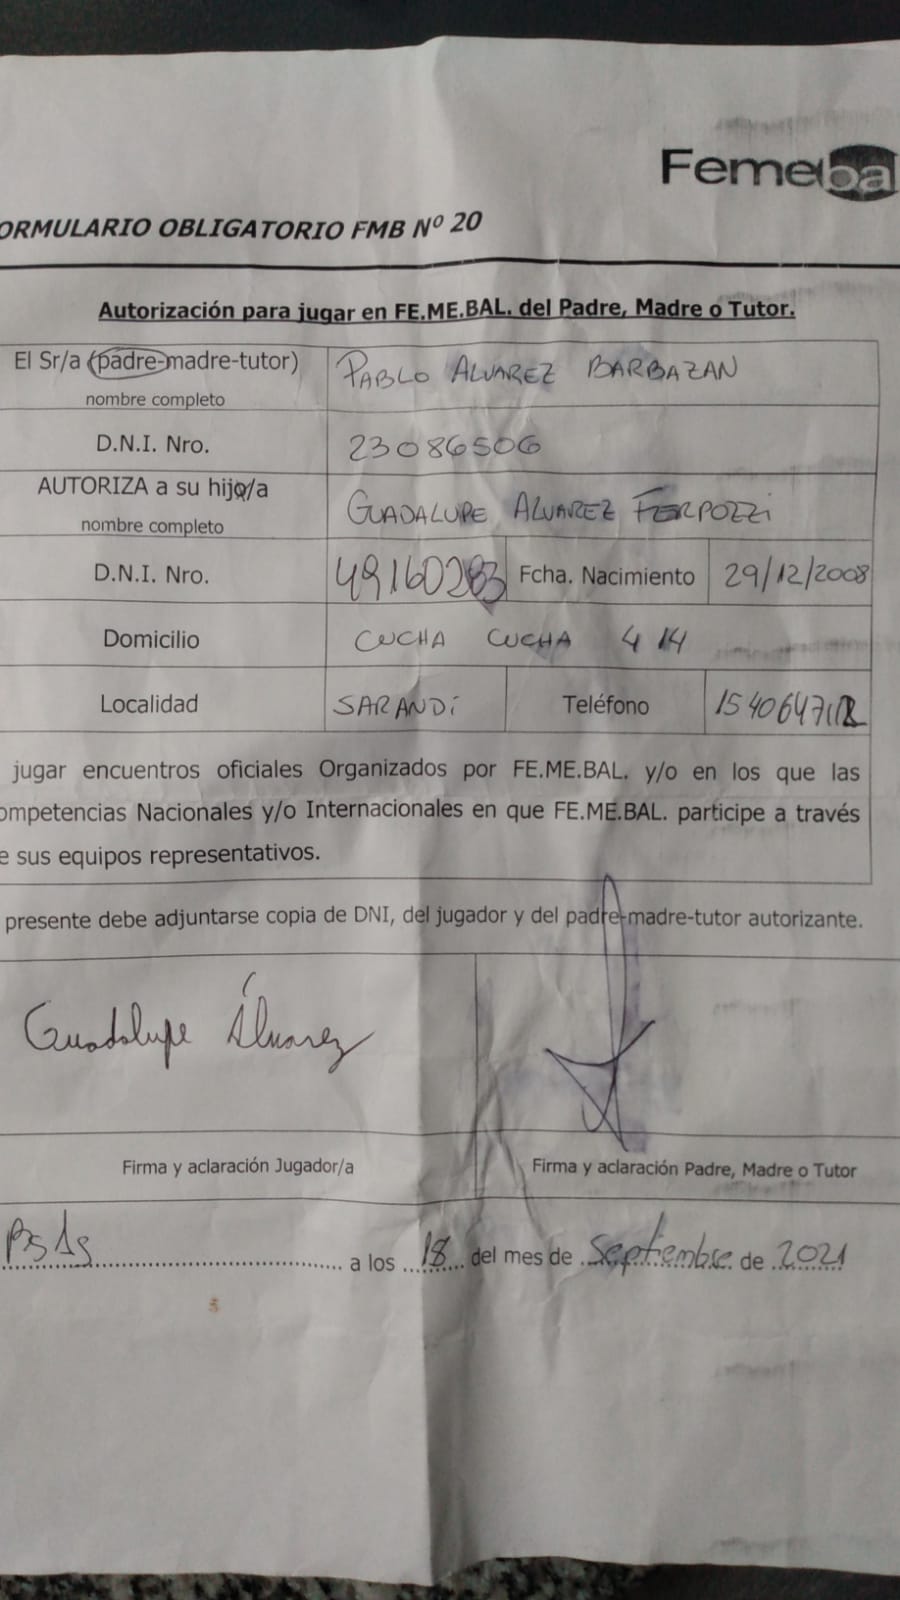 Femeba
ORMULARIO OBLIGATORIO FMB Nº 20
Autorización para jugar en FE.ME.BAL. del Padre, Madre o Tutor.
El Sr/a (padre-madre-tutor) PABLO ALVAREZ BARBAZAN
nombre completo
D.N.I. Nro. 23086506
AUTORIZA a su hijo/a GUADALUPE ALVAREZ
nombre completo
D.N.I. Nro. 49160283 Fcha. Nacimiento 29/12/2008
Domicilio CUCHA CUCHA 414
Localidad SARANDÍ Teléfono
jugar encuentros oficiales Organizados por FE.ME.BAL. y/o en los que las
ompetencias Nacionales y/o Internacionales en que FE.ME.BAL. participe a través
e sus equipos representativos.
presente debe adjuntarse copia de DNI, del jugador y del padre-madre-tutor autorizante.
Guadalupe Álvarez
Firma y aclaración Jugador/a Firma y aclaración Padre, Madre o Tutor
Bs As a los 18 del mes de Septiembre de 2021